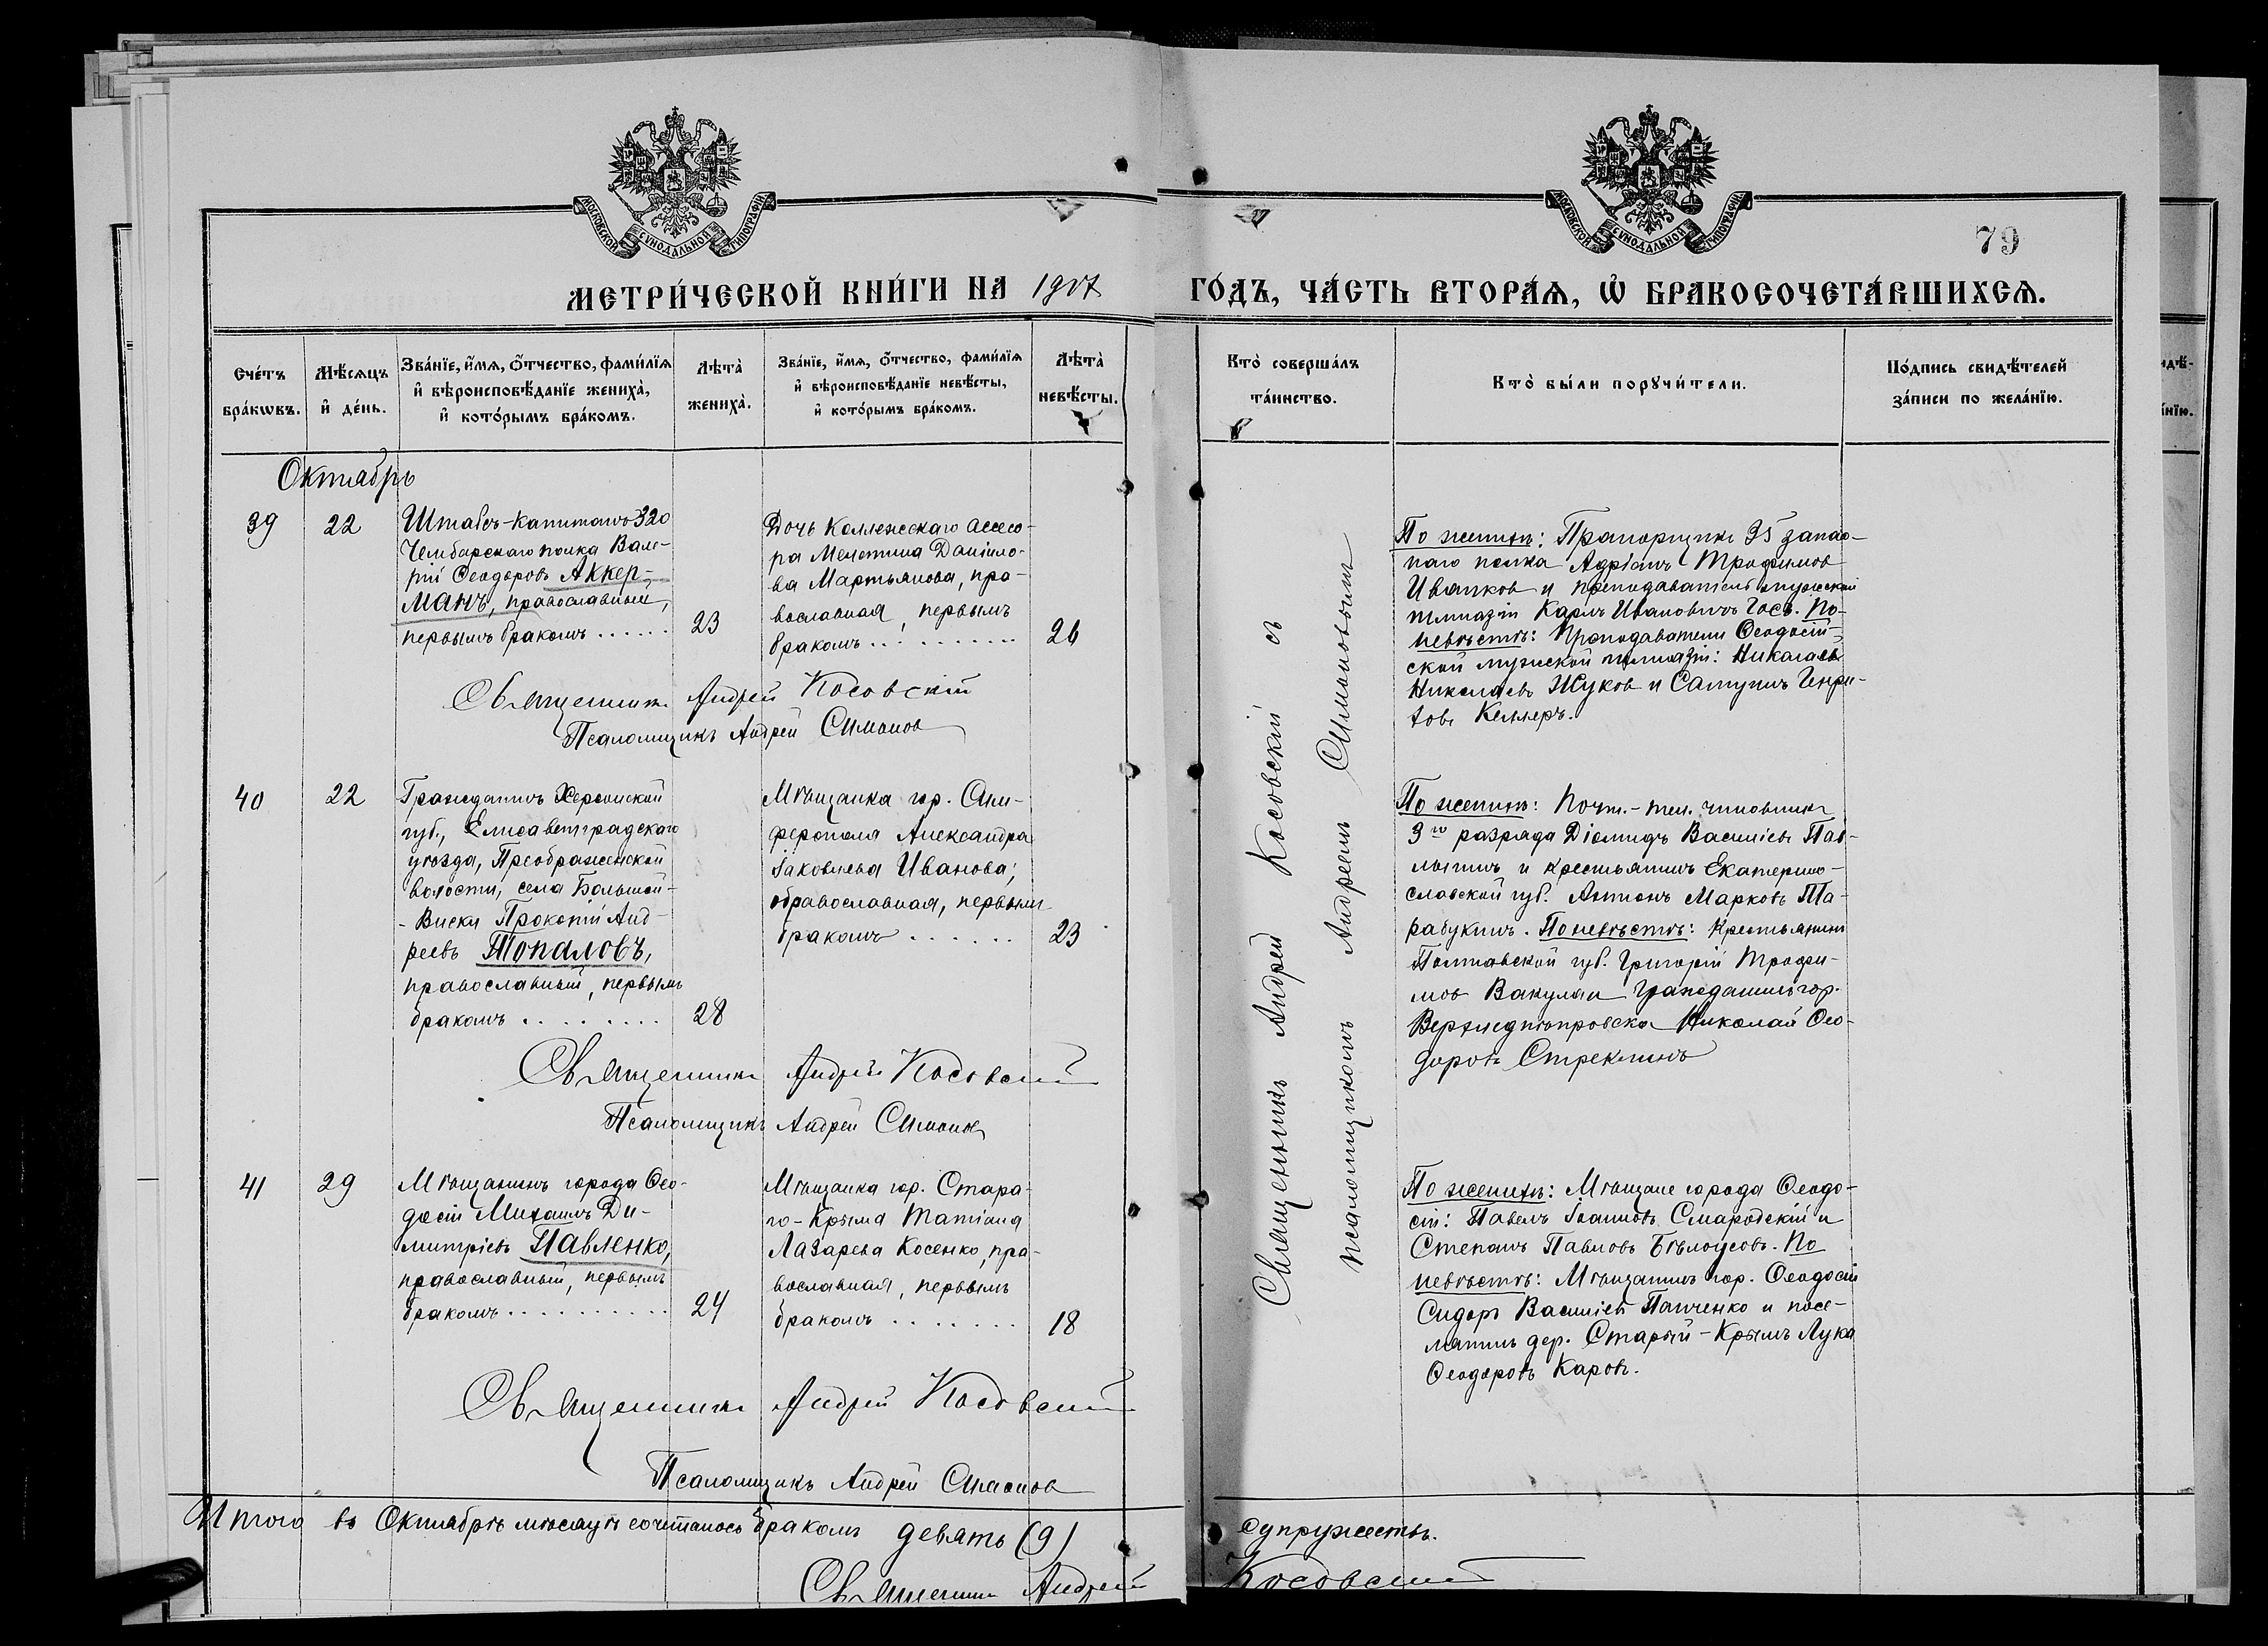 МОСКОВСКОЙ СУНОДАЛЬНОЙ ТИПОГРАФІИ
МОСКОВСКОЙ СУНОДАЛЬНОЙ ТИПОГРАФІИ
79
МЕТРИ́ЧЕСКОЙ КНИ́ГИ НА 1917 ГО́ДЪ, ЧА́СТЬ ВТОРА́Ѧ, Ѡ҆ БРАКОСОЧЕТА́ВШИХСѦ.
Сче́тъ бра́кѡвъ.
Мѣ́сяцъ и҆ де́нь.
Зва́нїе, и҆́мѧ, ѻ҆́тчество, фами́лїѧ
и҆ вѣроисповѣ́данїе жениха̀,
и҆ кото́рымъ бра́комъ.
Лѣта̀ жениха̀.
Зва́нїе, и҆́мѧ, ѻ҆́тчество, фами́лїѧ
и҆ вѣроисповѣ́данїе невѣ́сты,
и҆ кото́рымъ бра́комъ.
Лѣта̀ невѣ́сты.
Кто̀ соверша́лъ та́инство.
Кто̀ бы́ли порꙋчи́тели.
По́дпись свидѣ́телей
за́писи по жела́нїю.
Октябрь
39
22
Штабсъ-капитанъ 320
Чембарскаго полка Вале-
рій Ѳеодоровъ Аккер-
манъ, православный,
первымъ бракомъ ......
23
Дочь Коллежскаго Ассесо-
ра Мелетина Даніило-
ва Мартьянова, пра-
вославная, первымъ
бракомъ ..........
26
По женихѣ: Прапорщикъ 35 запас-
наго полка Адріанъ Трофимов
Иванков и преподаватель мужской
гимназіи Карлъ Ивановичъ Госъ. По-
невѣстѣ: Преподаватели Ѳеодосій-
ской мужской гимназіи: Николай
Николаевъ Жуков и Сатурнъ Генри-
ховъ Келлеръ.
Священникъ Андрей Косовскій
Псаломщикъ Андрей Симонов
40
22
Гражданинъ Херсонской
губ., Елисаветградскаго
уѣзда, Преображенской
волости, села Большой-
- Виски Прокопій Анд-
реевъ Топаловъ,
православный, первымъ
бракомъ ........
28
Мѣщанка гор. Сим-
ферополя Александра
Іаковлева Иванова,
православная, первымъ
бракомъ ......
23
По женихѣ: Почт.-тел. чиновникъ
3го разряда Діомидъ Василіевъ Пав-
лытинъ и крестьянинъ Екатерино-
славской губ. Антонъ Марковъ Та-
рабукинъ. По невѣстѣ: Крестьянинъ
Полтавской губ. Григорій Трофи-
мов Вакула и гражданинъ гор.
Верхнеднѣпровска Николай Ѳео-
доровъ Стреклинъ
Священникъ Андрей Косовскій
Псаломщикъ Андрей Симонов
41
29
Мѣщанинъ города Ѳео-
досіи Михаилъ Ди-
митріевъ Павленко,
православный, первымъ
бракомъ ..........
24
Мѣщанка гор. Стара-
го-Крыма Татіана
Лазарева Косенко, пра-
вославная, первымъ
бракомъ .......
18
По женихѣ: Мѣщане города Ѳеодо-
сіи: Павелъ Іоанновъ Смародскій и
Степанъ Павловъ Бѣлоусовъ. По
невѣстѣ: Мѣщанинъ гор. Ѳеодосіи
Сидоръ Василіевъ Панченко и посе-
лянинъ дер. Старый-Крымъ Лука
Ѳеодоровъ Каровъ.
Священникъ Андрей Косовскій
Псаломщикъ Андрей Симонов
Священникъ Андрей Косовскій съ
псаломщикомъ Андреемъ Симоновымъ
Итого въ Октябрѣ мѣсяцѣ сочеталось бракомъ девять (9) супружествъ.
Священникъ Андрей Косовскій